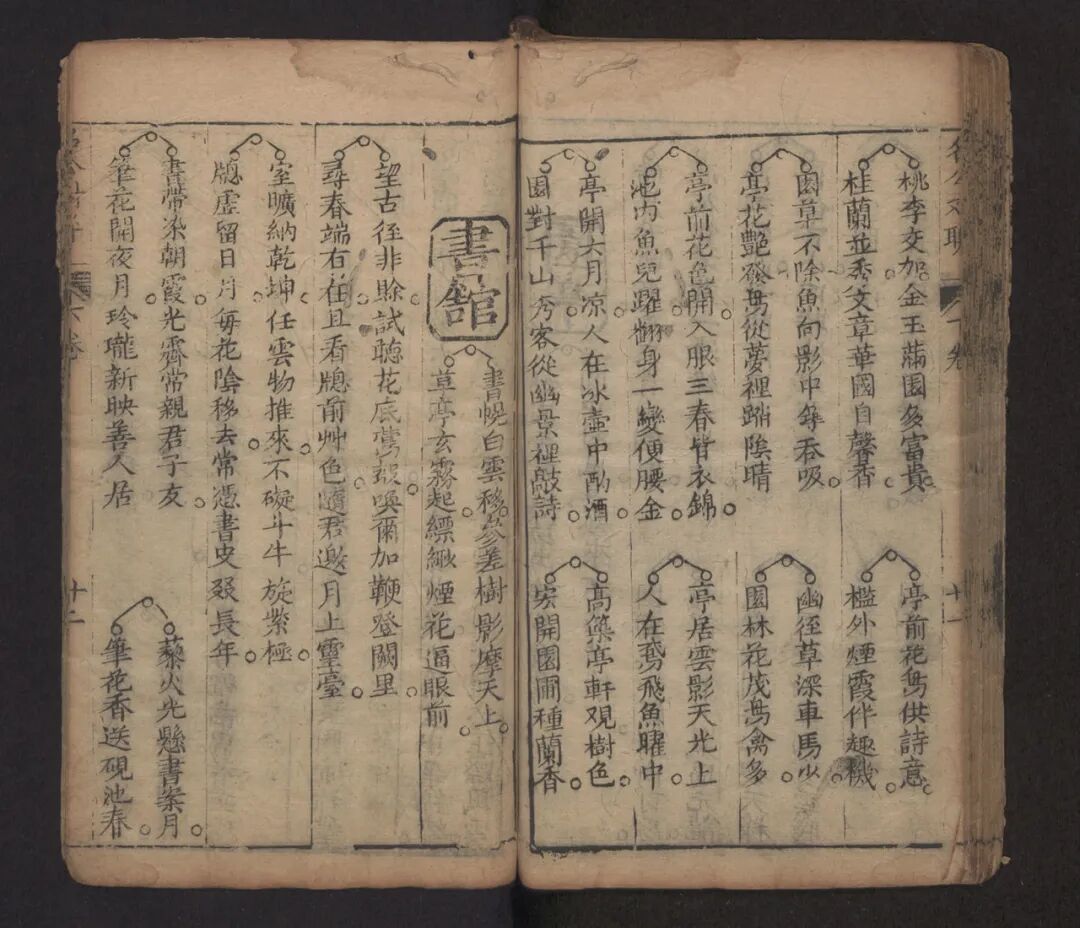 名公对聯
下卷
十一
桃李交加金玉滿園多富貴
桂蘭並秀文章華國自馨香
亭前花鳥供詩意
檻外煙霞伴趣機
園草不除魚向影中爭吞吸
亭花艷發鳥從夢裡 陰晴
幽徑草深車馬少
園林花茂鳥禽多
亭前花色開入眼三春皆衣錦
池內魚兒躍翻身一變便腰金
亭居雲影天光上
人在鳶飛魚曜中
亭開六月凉人在冰壺中酌酒
園對千山秀客從幽景裡敲詩
高築亭軒观樹色
突開園圃種蘭香
書舘
書幌白雲移參差樹影摩天上
草亭玄霧起縹緲煙花逼眼前
望古徑非賒試聽花底鶯聲喚爾加鞭登闕里
尋春端右在且看牕前艸色隨君邀月上靈臺
室曠納乾坤任雲物推來不礙斗牛旋紫極
牕虛留日月每花陰移去常憑書史叕長年
書帶染朝霞光霽常親君子友
筆花開夜月玲瓏新映善人居
藜火光懸書案月
筆花香送硯池春
下卷
十二